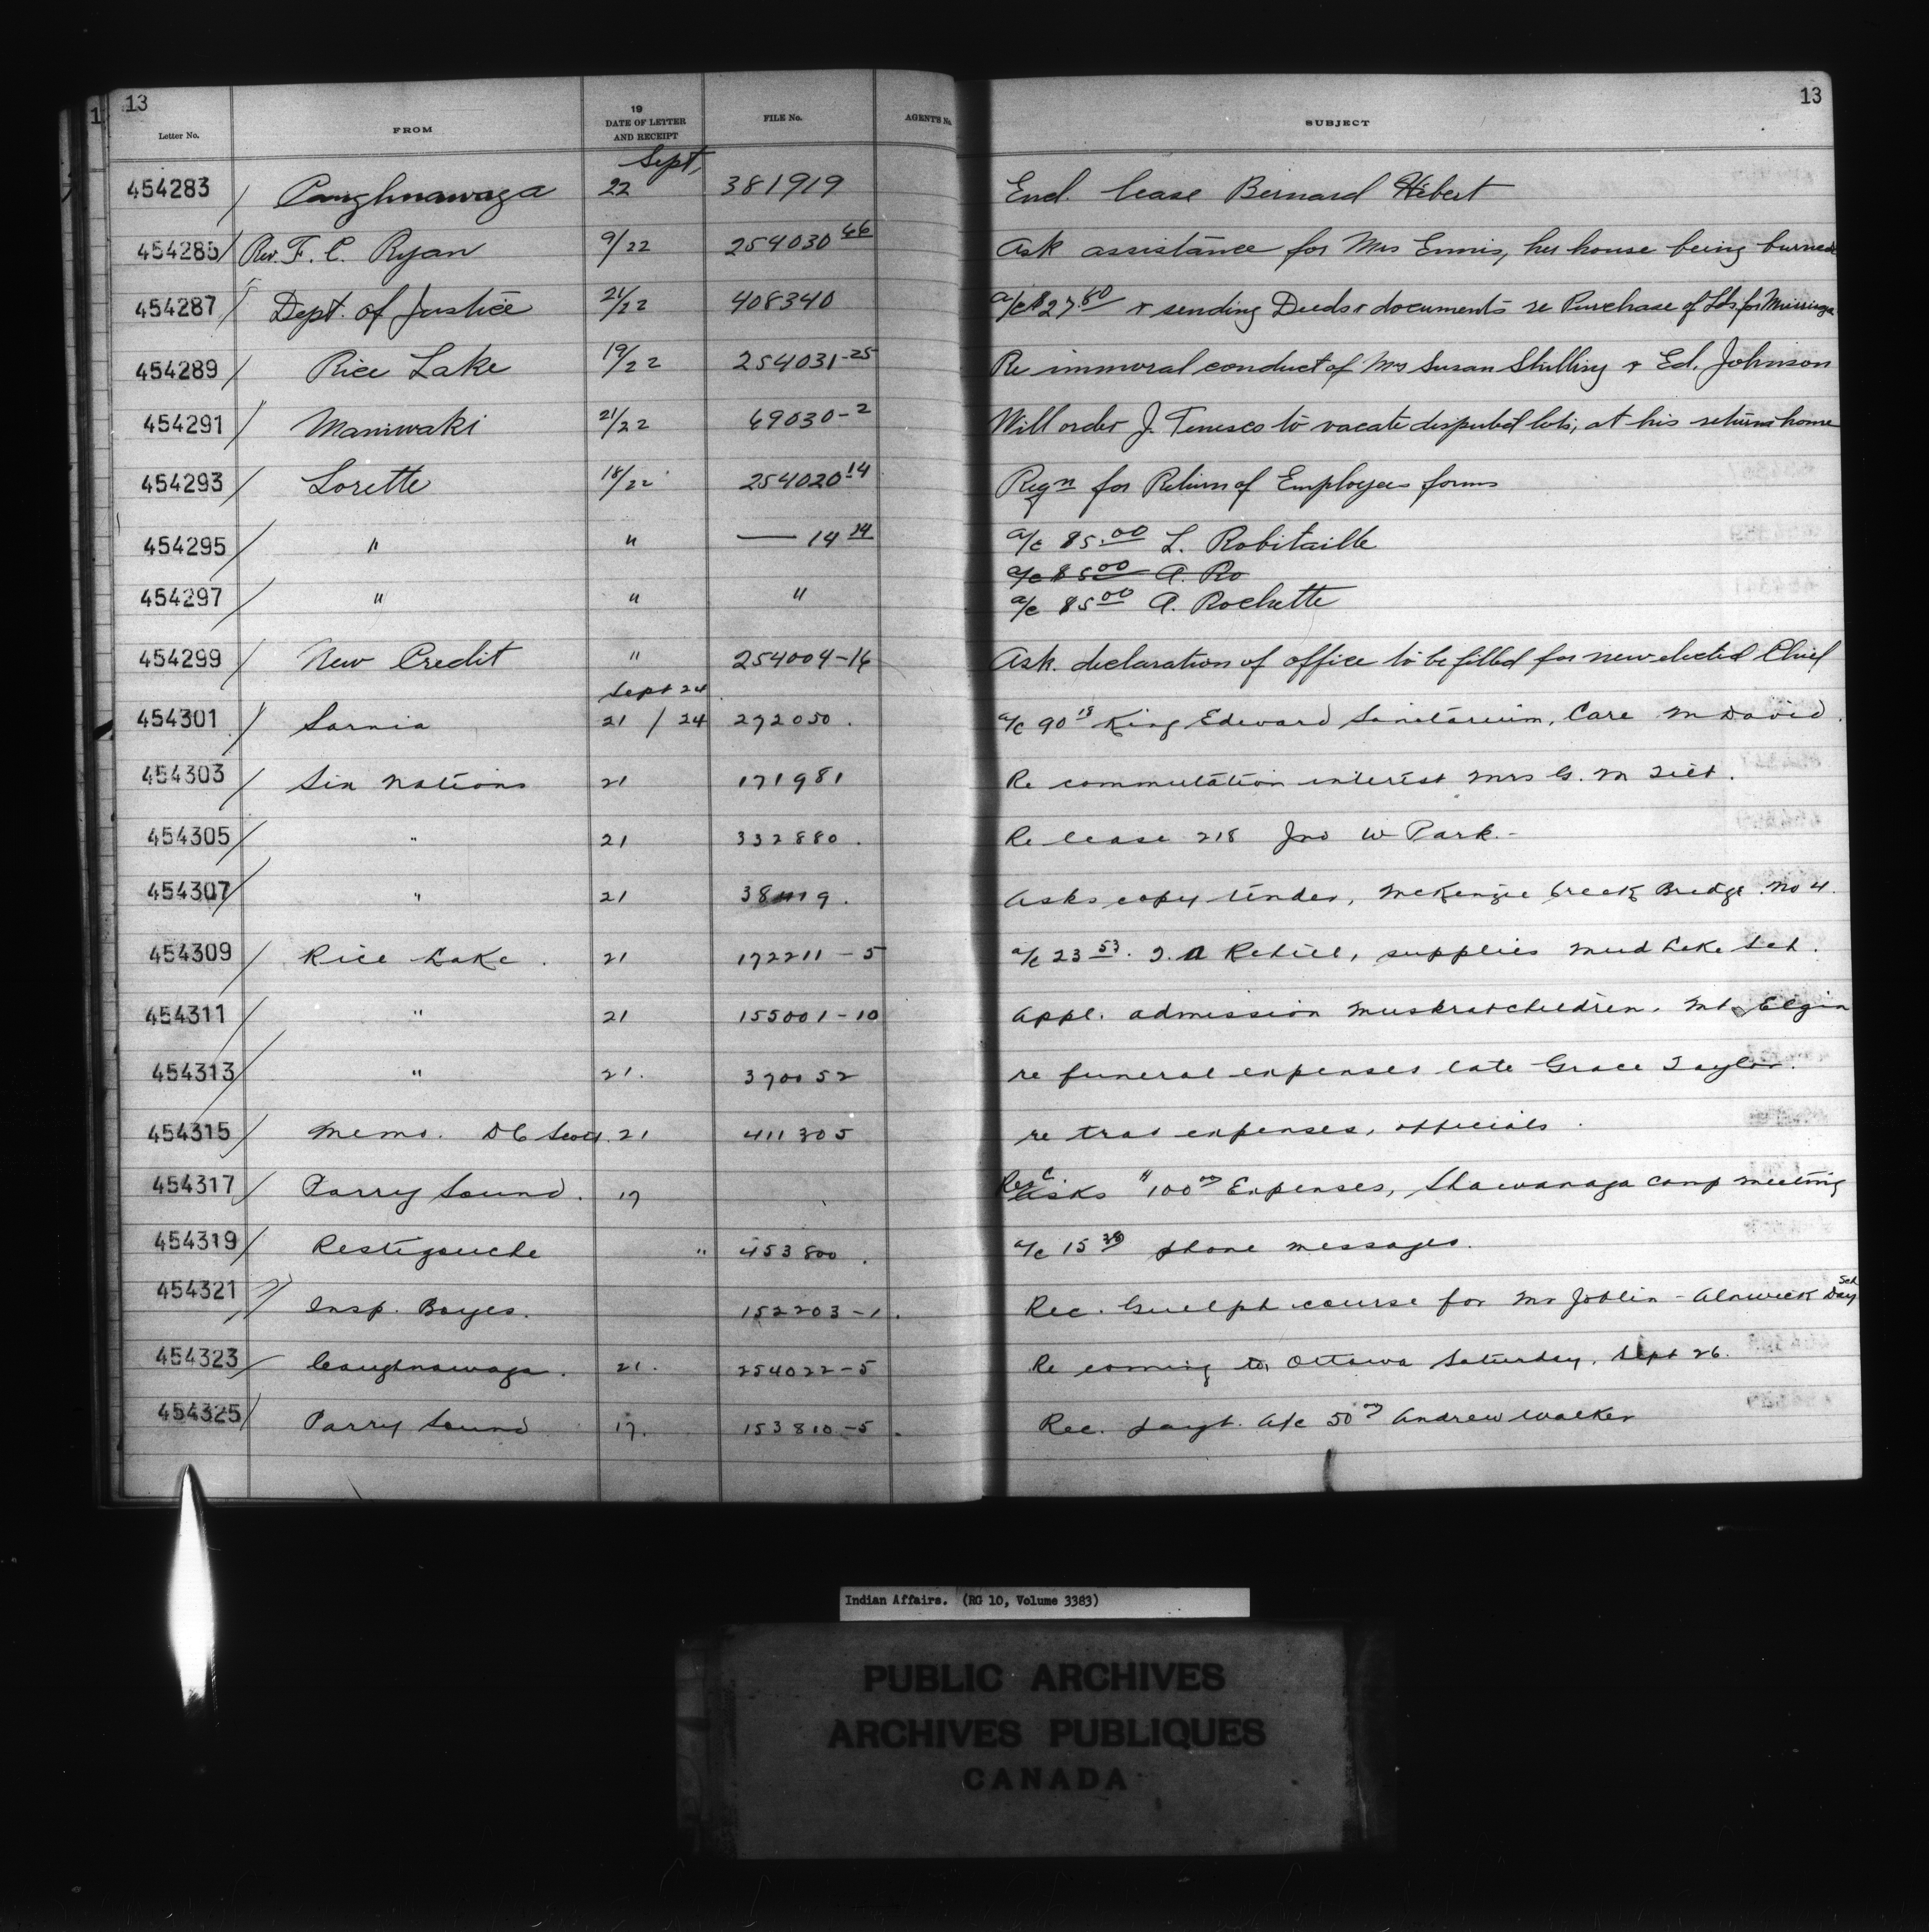 13 13
Letter No. FROM 19 DATE OF LETTER AND RECEIPT FILE No. AGENT'S No. SUBJECT
Sept,
454283 / Caughnawaga 22 381919 Encl. lease Bernard Hébert
454285 / Rev. F. C. Ryan 9/22 254030 66 Ask assistance for Mrs Ennis, her house being burned
454287 / Dept. of Justice 21/22 408340 a/c $27 60 & sending Deeds & documents re Purchase of Lds for
454289 / Rice Lake 19/22 254031-25 Re immoral conduct of Mrs Susan Shilling & Ed. Johnson
454291 / Maniwaki 21/22 69030-2 Will order J. Tenesco to vacate disputed lots, at his return home
454293 / Lorette 18/22 254020 14 Reqn for Return of Employees forms
454295 / " " — 14 14 a/c $5.00 L. Robitaille
a/c $5 00 A. Ro
454297 / " " " a/c $5 00 A. Rochette
454299 / New Credit " 254004-16 Ask declaration of office to be filled for new elected Chief
Sept 24
454301 / Sarnia 21 / 24 272050. a/c 90 18 King Edward Sanitarium, Care M David.
454303 / Six Nations 21 171981 Re commutation interest Mrs G. M
454305 / " 21 332880. Re lease 218 Jno W Park.-
454307 / " 21 Asks copy tender, McKenzie Creek Bridge. No 4.
454309 / Rice Lake. 21 172211-5 a/c 23 53. supplies Mud Lake Sch.
454311 / " 21 155001-10 Appl. admission Muskrat children. Mt Elgin
454313 / " 21. 370052 re funeral expenses late Grace Taylor.
454315 / Memo. D C Scott. 21 411305 re trav expenses, officials.
454317 / Parry Sound. 17 Rec. Asks "100 00 Expenses, Shawanaga Camp meeting
454319 / Restigouche " 453800. a/c 15 38 phone messages.
454321 // Insp. Boyes. 152203-1. Rec. Guelph course for Mr Joblin - Alnwick Day Sch
454323 / Caughnawaga. 21. 254022-5 Re coming to Ottawa Saturday, Sept 26.
454325 / Parry Sound 17. 153810-5. Rec. payt. A/c 50 00 Andrew Walker
Indian Affairs. (RG 10, Volume 3383)
PUBLIC ARCHIVES
ARCHIVES PUBLIQUES
CANADA